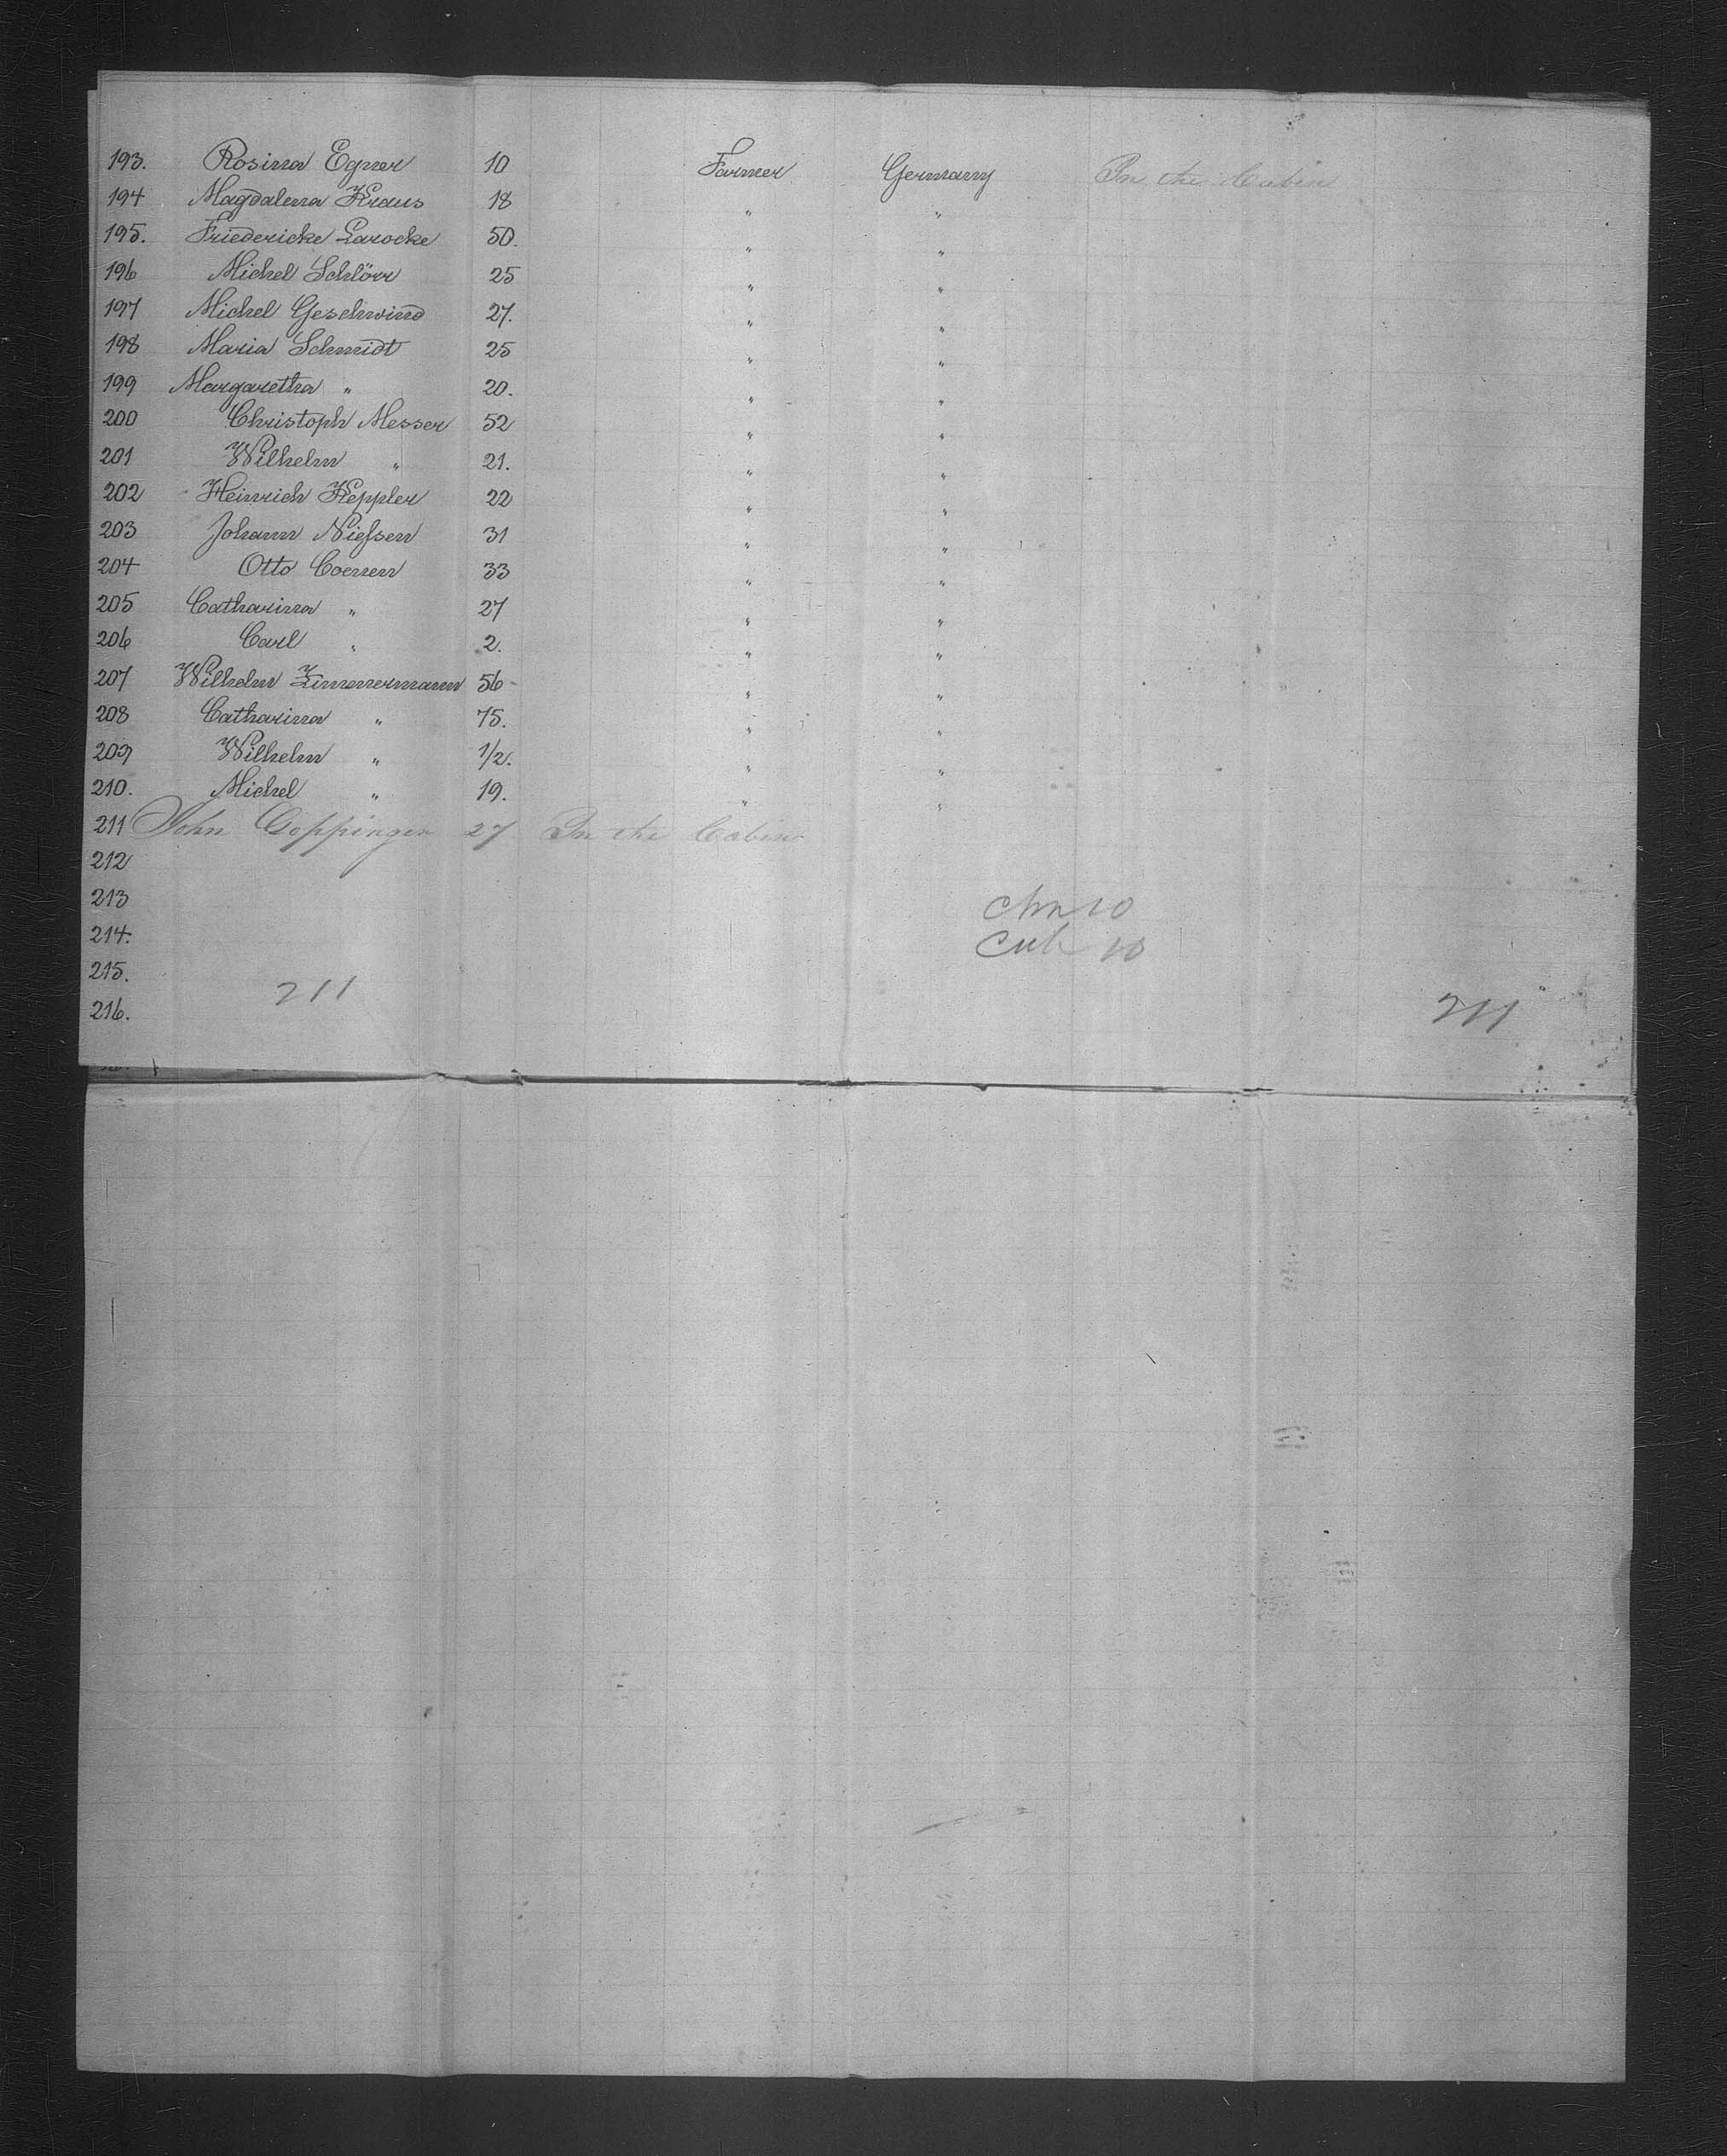 193. Rosina Egner 10 Farmer Germany In the Cabin
194 Magdalena Kraus 18 " "
195. Friedericke Larocke 50. " "
196 Michel Schlörr 25 " "
197 Michel Geschwind 27. " "
198 Maria Schmidt 25 " "
199 Margaretha " 20. " "
200 Christoph Messer 52 " "
201 Wilhelm " 21. " "
202 Heinrich Keppler 22 " "
203 Johann Nießen 31 " "
204 Otto Coenen 33 " "
205 Catharina " 27 " "
206 Carl " 2. " "
207 Wilhelm Zimmermann 56 " "
208 Catharina " 75. " "
209 Wilhelm " 1/2. " "
210. Michel " 19. " "
211 John Coppinger 27 In the Cabin
212
213
214.
215.
216.
211
211